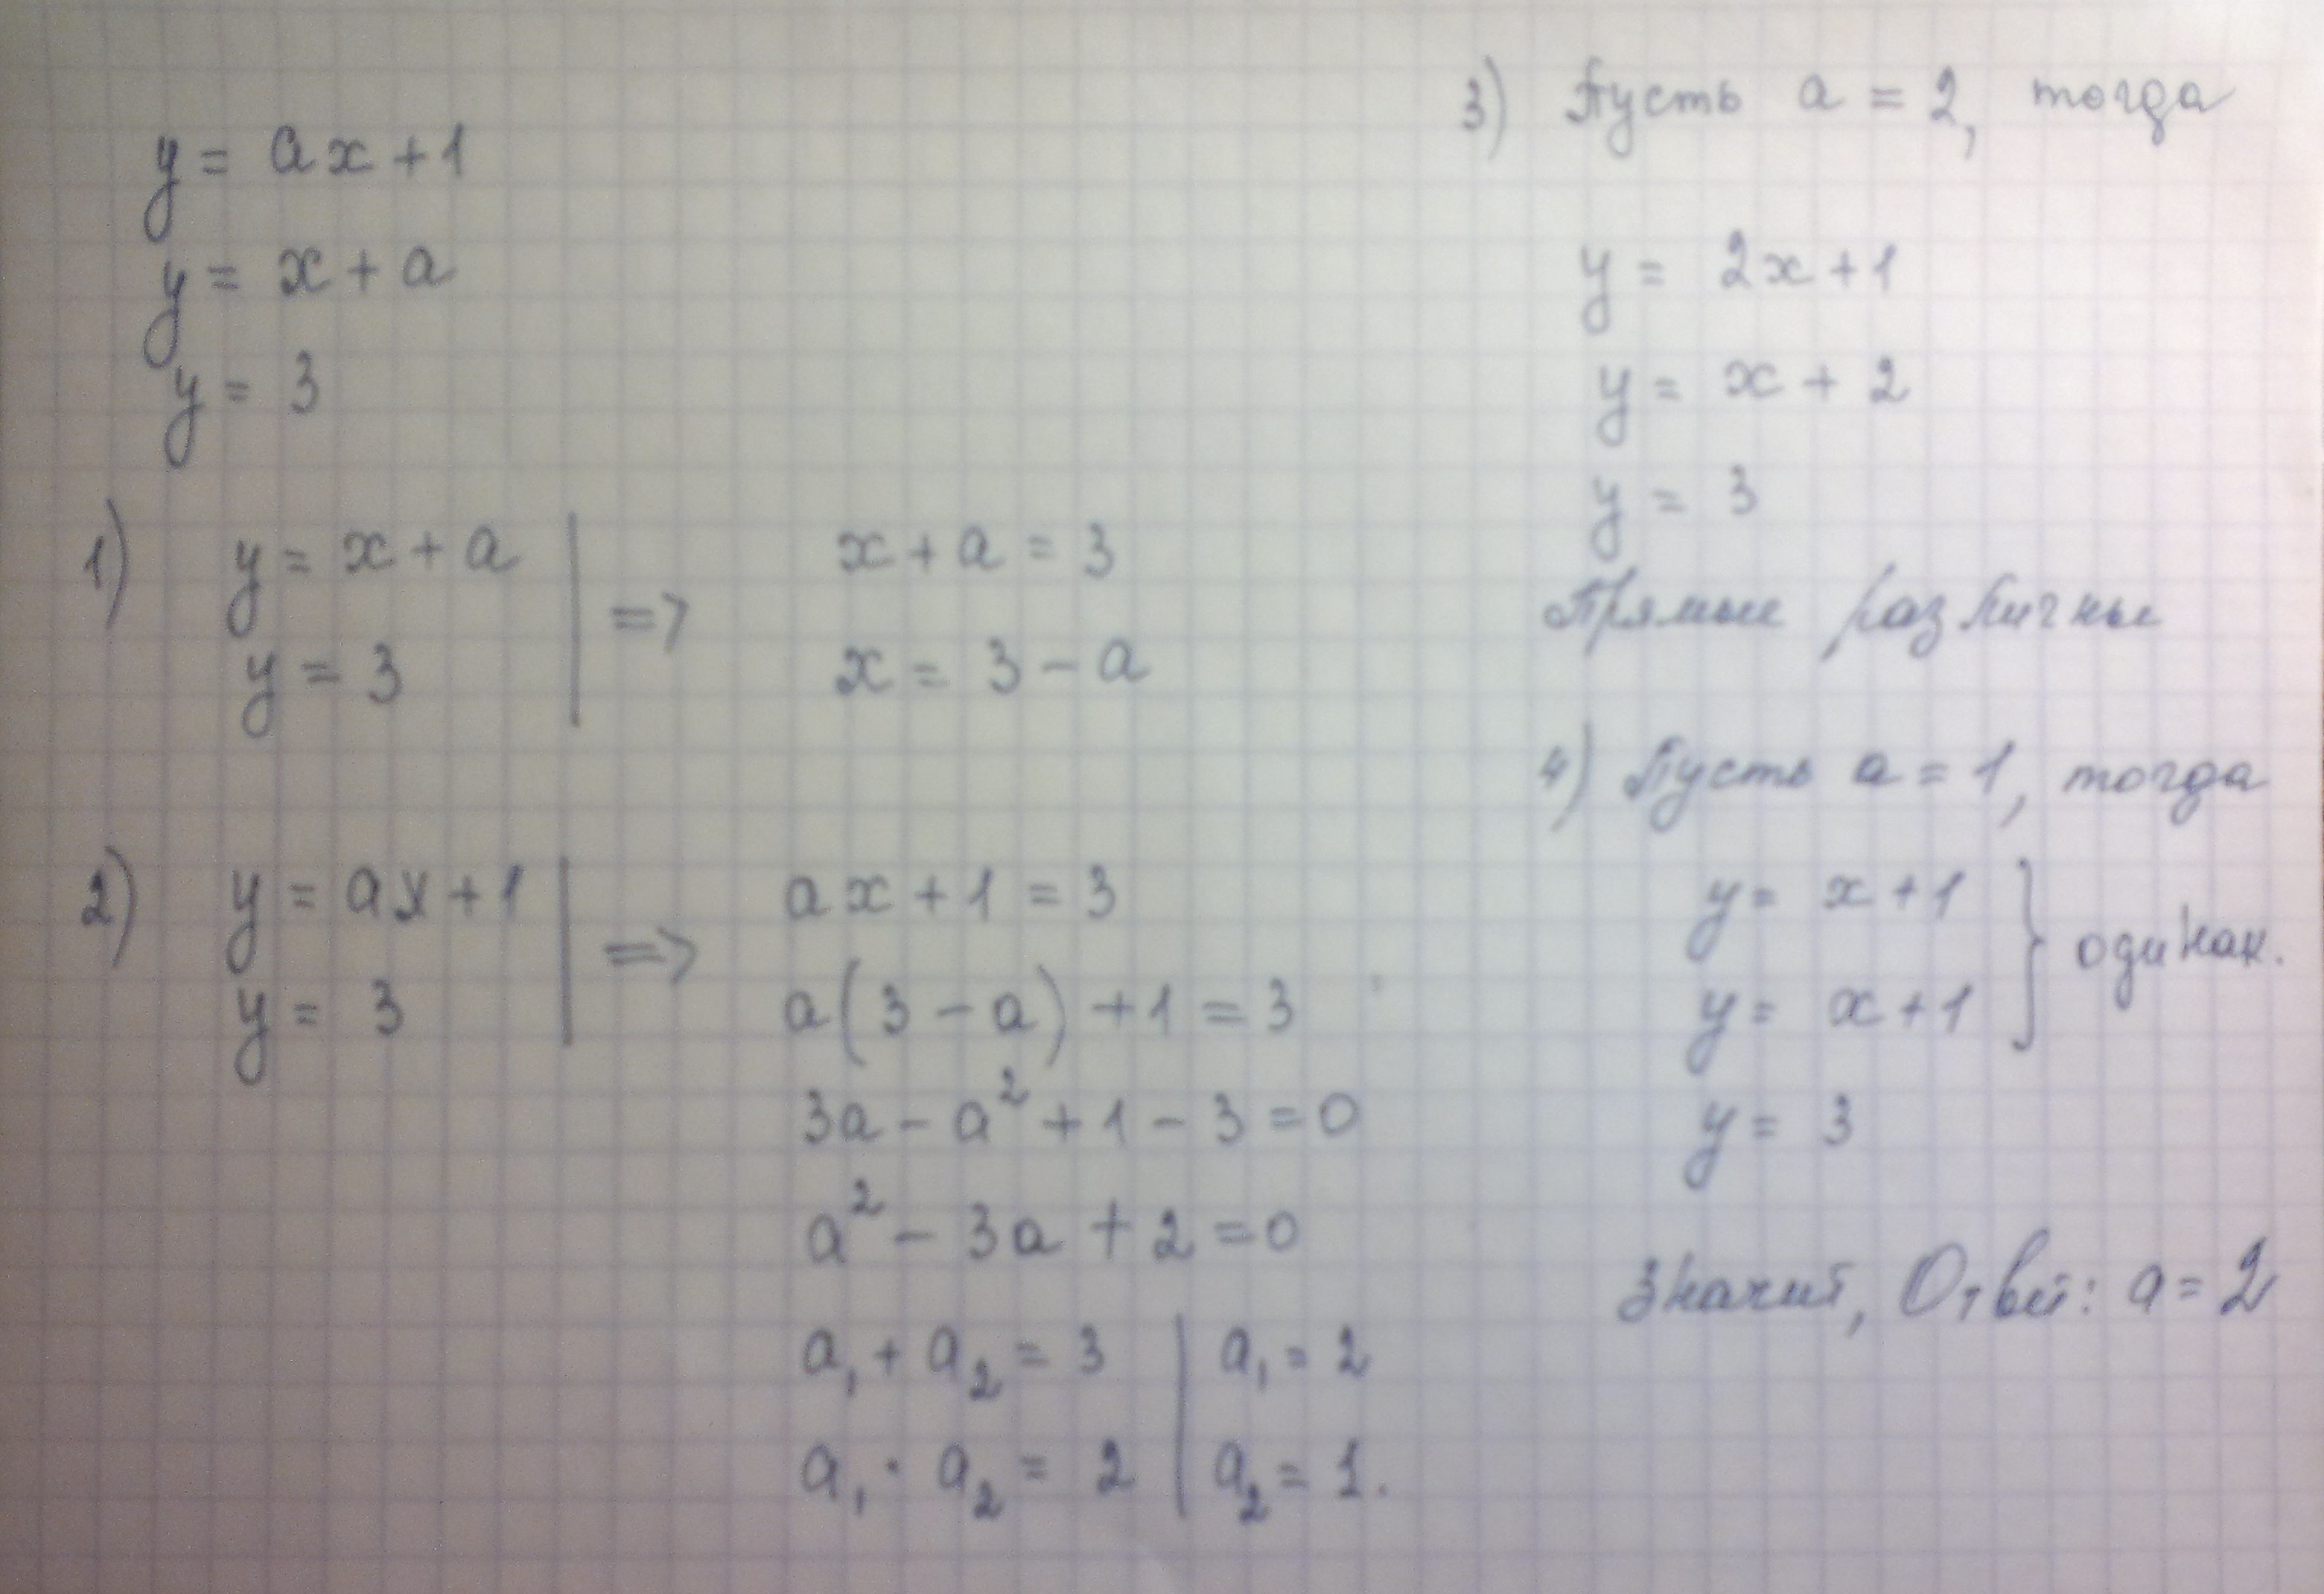 y = ax + 1
y = x + a
y = 3
1) y = x + a | => x + a = 3
y = 3 | x = 3 - a
2) y = ax + 1 | => ax + 1 = 3
y = 3 | a(3 - a) + 1 = 3
3a - a² + 1 - 3 = 0
a² - 3a + 2 = 0
a₁ + a₂ = 3 | a₁ = 2
a₁ · a₂ = 2 | a₂ = 1.
3) Пусть a = 2, тогда
y = 2x + 1
y = x + 2
y = 3
Прямые различны
4) Пусть a = 1, тогда
y = x + 1 } одинак.
y = x + 1
y = 3
Значит, Ответ: a = 2